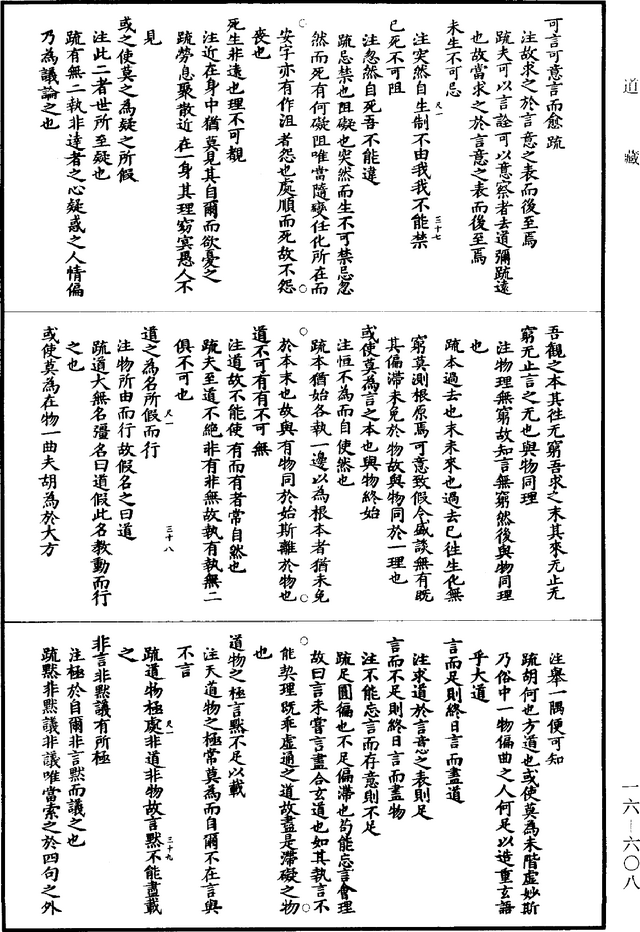 道藏
可言可意言而愈疏
注故求之於言意之表而後至焉
疏夫可以言詮可以意察者去道彌疏遠
也故當求之於言意之表而後至焉
未生不可忌
尺一
三十七
注突然自生制不由我我不能禁
已死不可阻
注忽然自死吾不能違
疏忌禁也阻礙也突然而生不可禁忌忽
然而死有何礙阻唯當隨變任化所在而
安字亦有作沮者怨也處順而死故不怨
喪也
死生非遠也理不可覩
注近在身中猶莫見其自爾而欲憂之
疏勞息聚散近在一身其理窈冥愚人不
見
或之使莫之為疑之所假
注此二者世所至疑也
疏有無二執非達者之心疑惑之人情偏
乃為議論之也
吾觀之本其往无窮吾求之末其來无止无
窮无止言之无也與物同理
注物理無窮故知言無窮然後與物同理
也
疏本過去也末未來也過去已往生化無
窮莫測根原焉可意致假令盛談無有既
其偏滯未免於物故與物同於一理也
或使莫為言之本也與物終始
注恒不為而自使然也
疏本猶始各執一邊以為根本者猶未免
於本末也故與有物同於始斯離於物也
道不可有有不可無
注道故不能使有而有者常自然也
疏夫至道不絕非有非無故執有執無二
俱不可也
道之為名所假而行
尺一
三十八
注物所由而行故假名之曰道
疏道大無名彊名曰道假此名教動而行
之也
或使莫為在物一曲夫胡為於大方
注舉一隅便可知
疏胡何也方道也或使莫為未階虛妙斯
乃俗中一物偏曲之人何足以造重玄語
乎大道
言而足則終日言而盡道
注求道於言意之表則足
言而不足則終日言而盡物
注不能忘言而存意則不足
疏足圓徧也不足偏滯也苟能忘言會理
故曰言未嘗言盡合玄道也如其執言不
能契理既乖虛通之道故盡是滯礙之物
也
道物之極言默不足以載
注夫道物之極常莫為而自爾不在言與
不言
疏道物極處非道非物故言默不能盡載
之
尺一
三十九
非言非默議有所極
注極於自爾非言默而議之也
疏默非默議非議唯當索之於四句之外
一六—六〇八